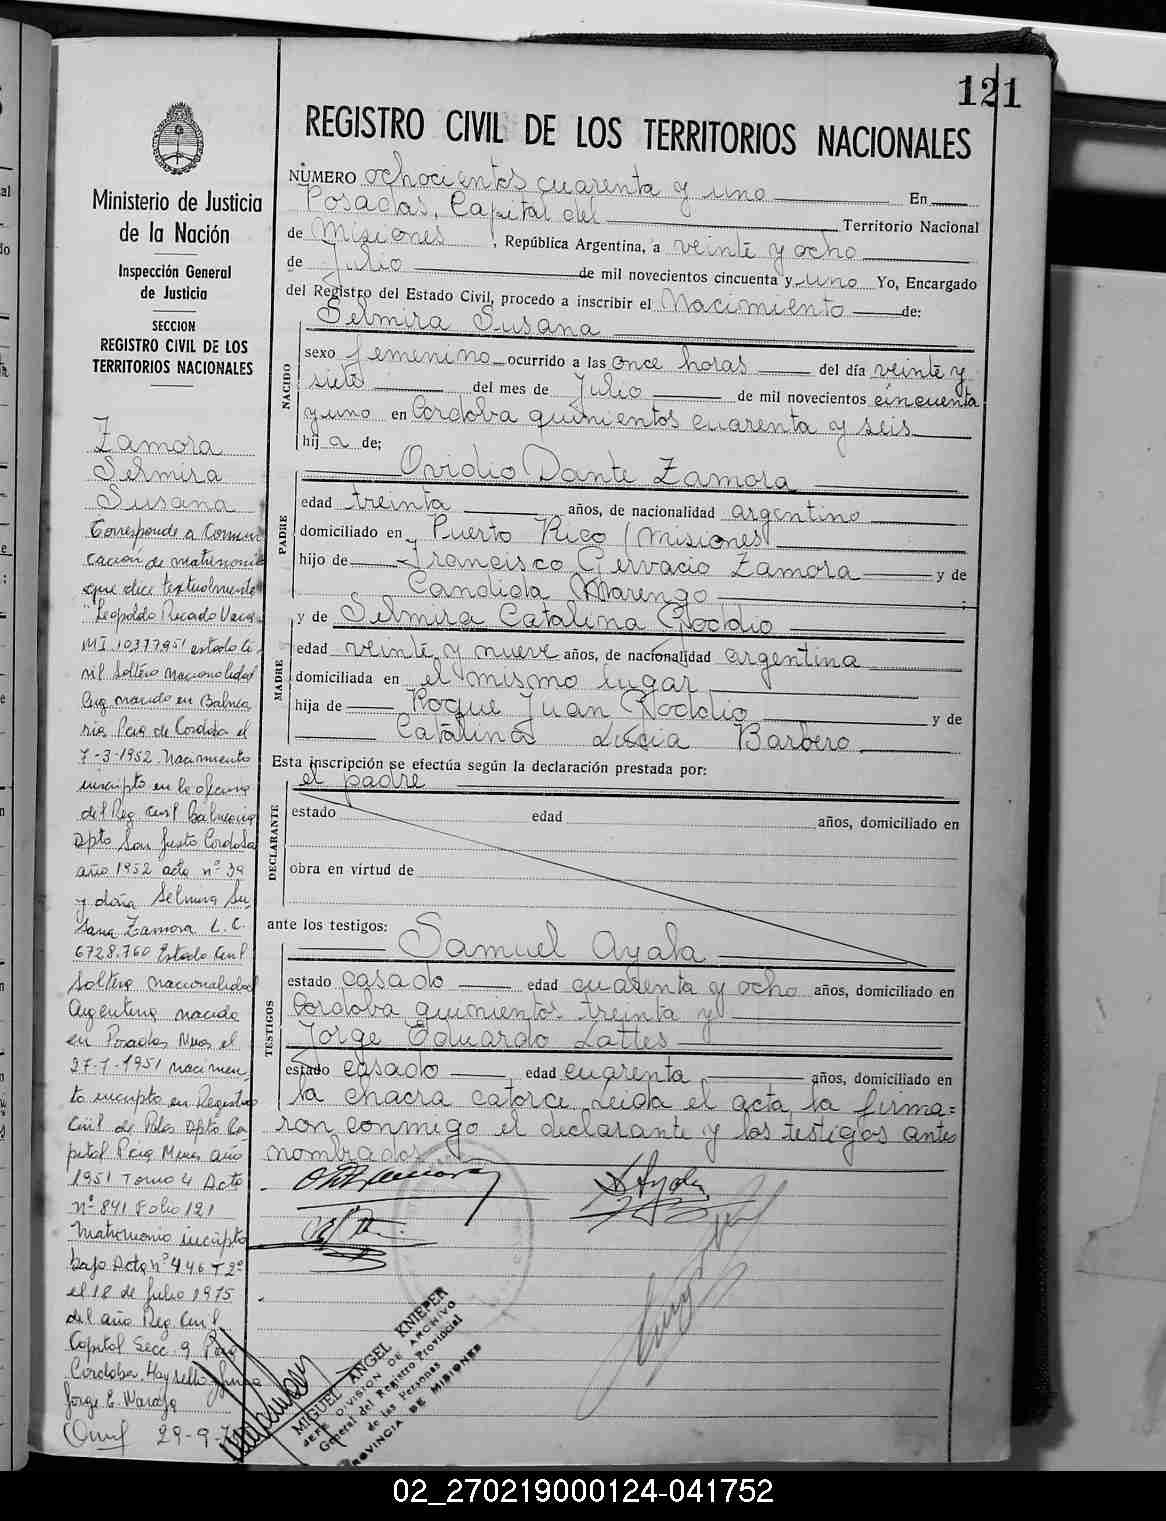 121
REGISTRO CIVIL DE LOS TERRITORIOS NACIONALES
NÚMERO ochocientos cuarenta y uno En
Posadas, Capital del Territorio Nacional
de Misiones, República Argentina, a veinte y ocho
de Julio de mil novecientos cincuenta y uno Yo, Encargado
del Registro del Estado Civil, procedo a inscribir el Nacimiento de:
Selmira Susana
NACIDO
sexo femenino ocurrido a las once horas del día veinte y
siete del mes de Julio de mil novecientos cincuenta
y uno en Cordoba quinientos cuarenta y seis
hija de;
Ovidio Dante Zamora
PADRE
edad treinta años, de nacionalidad argentino
domiciliado en Puerto Rico (Misiones)
hijo de Francisco Gervacio Zamora y de
Candida Marengo
y de Selmira Catalina Roddio
MADRE
edad veinte y nueve años, de nacionalidad argentina
domiciliada en el mismo lugar
hija de Roque Juan Roddio y de
Catalina Lucia Barbero
Esta inscripción se efectúa según la declaración prestada por:
el padre
DECLARANTE
estado edad años, domiciliado en
obra en virtud de
ante los testigos:
Samuel Ayala
TESTIGOS
estado casado edad cuarenta y ocho años, domiciliado en
Cordoba quinientos treinta y
Jorge Eduardo Lattes
estado casado edad cuarenta años, domiciliado en
la chacra catorce. Leida el acta la firma=
ron conmigo el declarante y los testigos antes
nombrados
Ministerio de Justicia
de la Nación
Inspección General
de Justicia
SECCION
REGISTRO CIVIL DE LOS
TERRITORIOS NACIONALES
Zamora
Selmira
Susana
Corresponde a Comuni
cación de matrimonio
que dice textualmente
"Leopoldo Ricardo
MI 10377951 estado ci
vil Soltero nacionalidad
Arg nacido en Balnea
ria Pcia de Cordoba el
7-3-1952. Nacimiento
inscripto en la oficina
del Reg Civil Balnearia
Dpto San Justo Cordoba
año 1952 acta nº 39
y doña Selmira Su
sana Zamora L.C.
6728.760 Estado Civil
Soltera nacionalidad
Argentina nacida
en Posadas Mnes el
27-7-1951 nacimien
to inscripto en Registro
Civil de Pdas Dpto Ca
pital Pcia Mnes año
1951 Tomo 4 Acta
nº 841 Folio 121
Matrimonio inscripto
bajo Acta nº 446 Tº 2º
el 18 de Julio 1975
del año Reg Civil
Capital Secc. 9 Pcia
Cordoba. Hay sello firma
Jorge E.
29-9-7
MIGUEL ANGEL KNIEPER
JEFE DIVISION DE ARCHIVO
General del Registro Provincial
de las Personas
PROVINCIA DE MISIONES
02_270219000124-041752